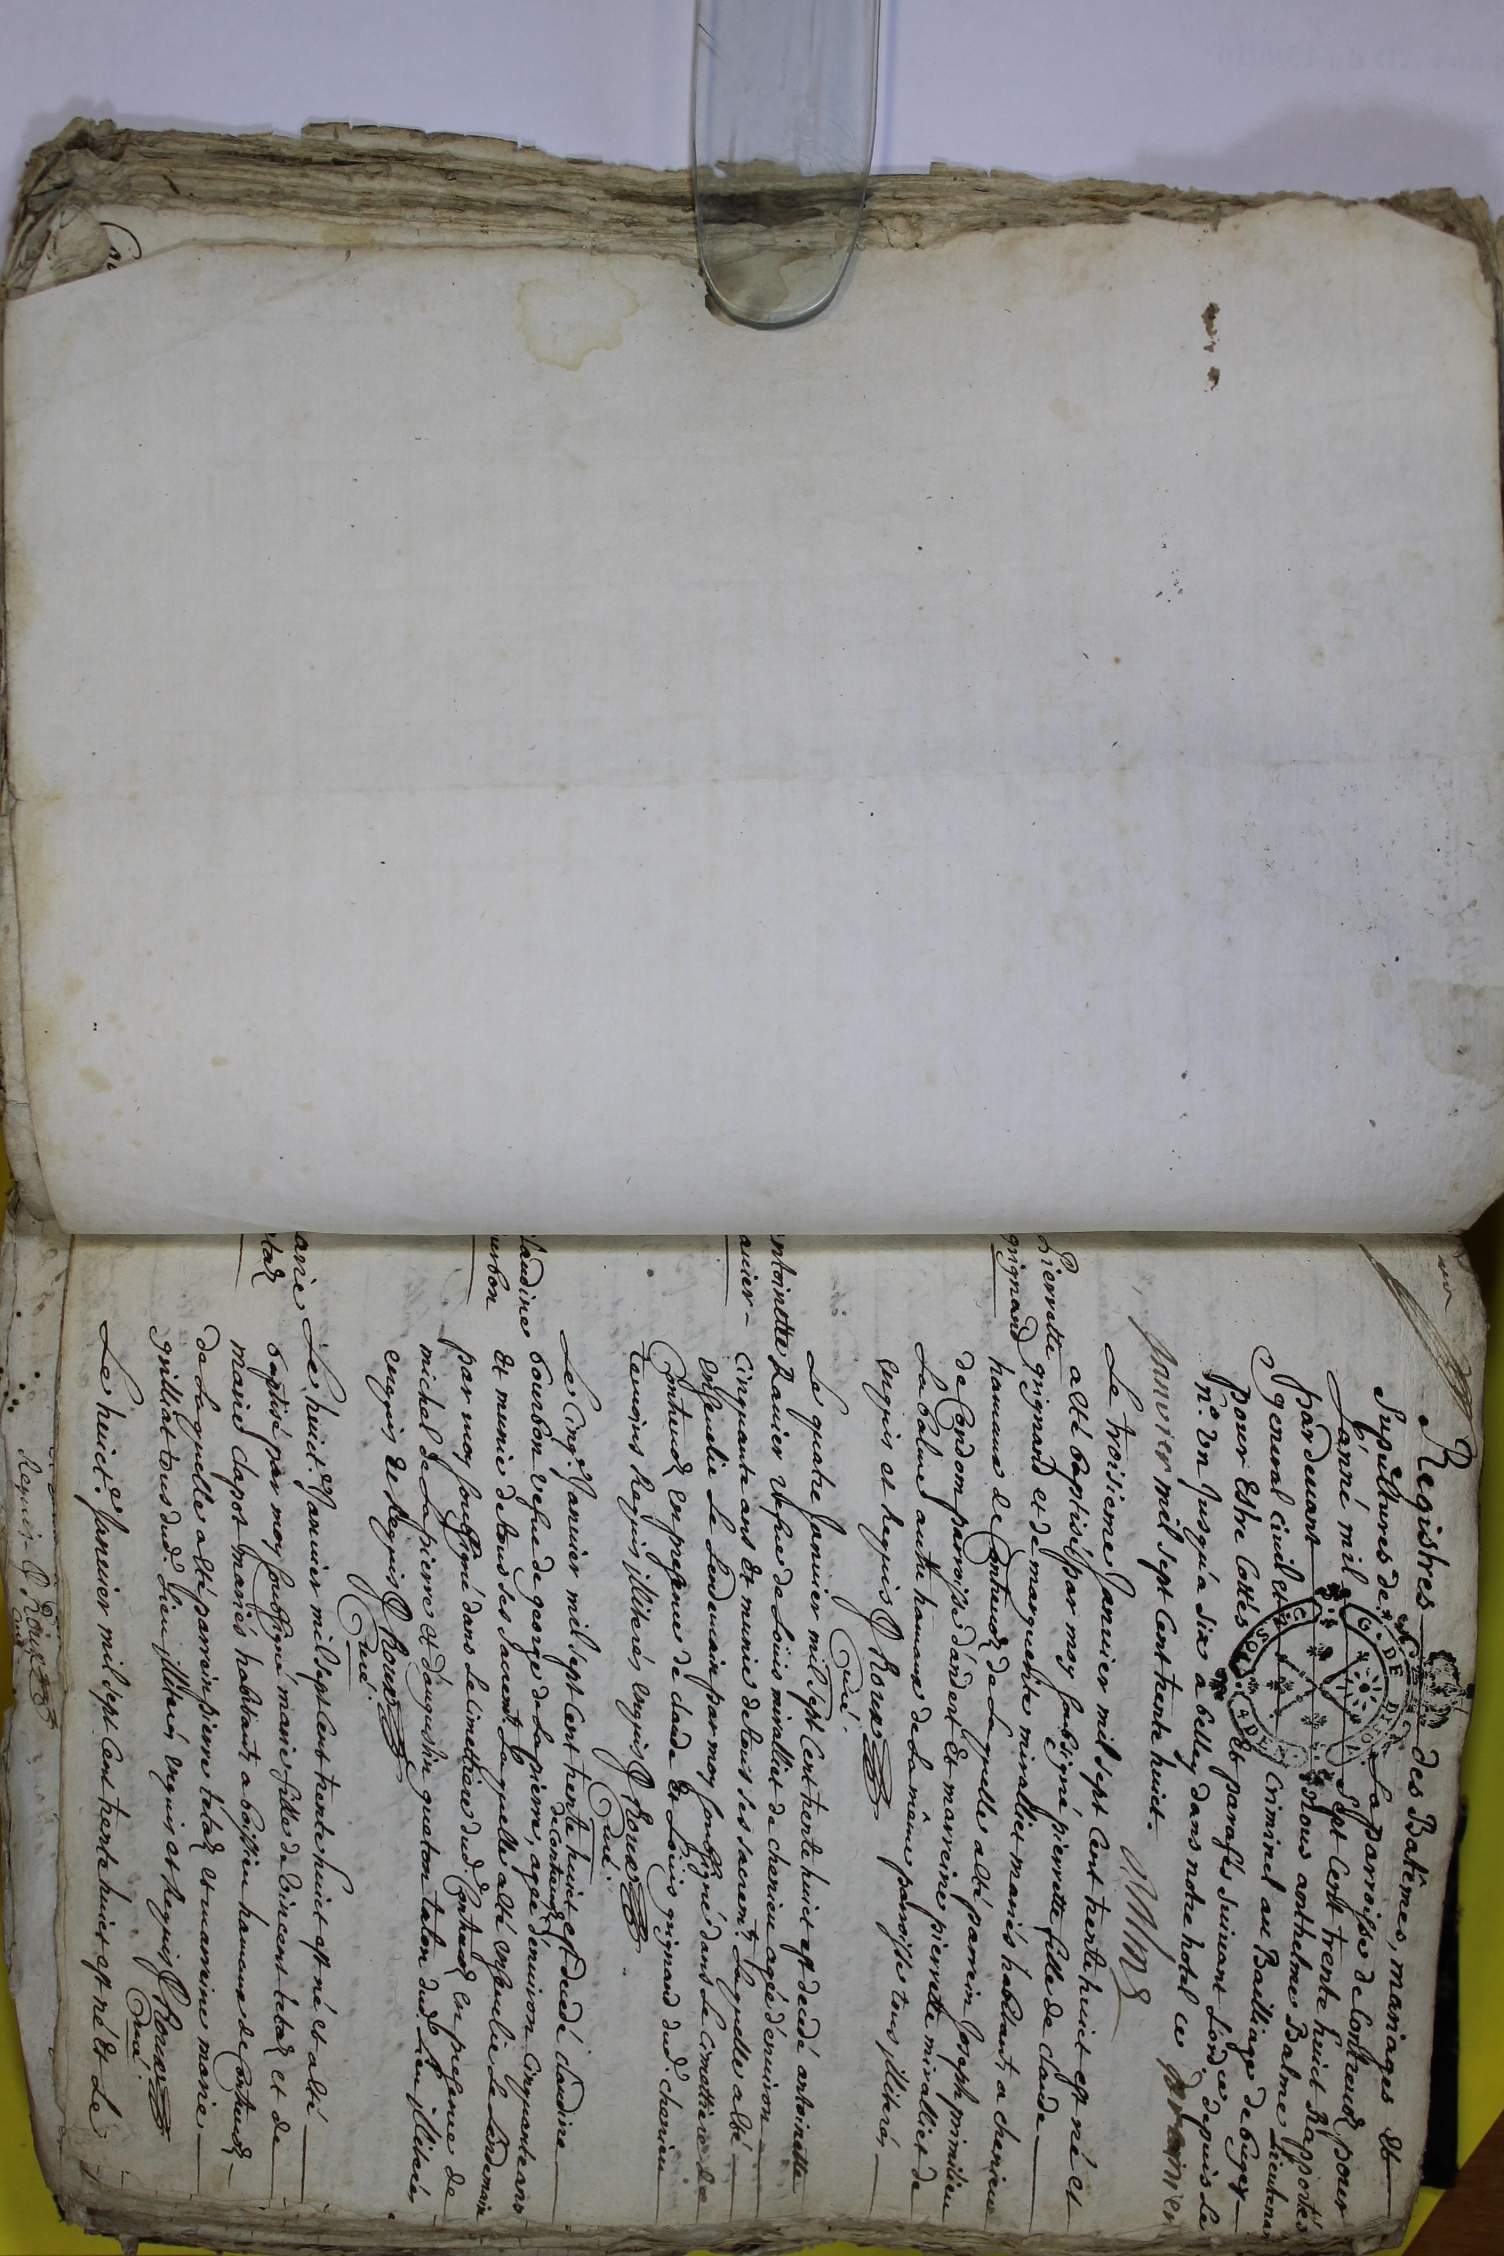 Registres des Batêmes, mariages et
Sepultures de la parroisse de Contreuoz pour
L'anné mil Sept Cent trente huict Rapportés
par deuant Nous anthelme Balme Lieutenant
general ciuil et Criminel au Bailliage de bugey
pour Estre Cottés Et parafés Suiuant L'ord.ce depuis Le
N.o Vn Jusqu'a Six a belley dans notre hotel ce
Januier mil Sept Cent trente huict.
Le troisieme Januier mil Sept Cent trente huict est né et
Pierrette
grignand
a esté baptisé par moy soubsigné, pierrette fille de claude
grignand et de marguerite miralliet mariés habitants a cherieu
hameau de Contreuoz de Laquelle a esté parrein Joseph primilieu
de Condom parroisse d'andert Et marreine pierrette miralliet de
La balme autre hameau de La même parroisse tous illiterés
enquis et requis J Roux
Curé.
Le quatre Januier mil Sept Cent trente huict est decedé antoinette
ntoinette
auier
Rauier vefue de Loüis miralliet de cherieu agée d'enuiron
Cinquante ans Et munie de tous ses sacrem.ts Laquelle a esté
enseuelie Le Lendemain par moy soussigné dans Le Cimettiere de
Contreuoz en presence de claude Et Loüis grignand dud. cherieu
temoins Requis illiterés enquis J Roux
Curé.
Le Cinq.e Januier mil Sept Cent trente huict est decedé claudine
laudine
urbon
bourbon vefue de george de Lapierre, de Contreuoz agée d'enuiron Cinquante ans
Et munie de tous ses sacrem.ts Laquelle a esté enseuelie Le Lendemain
par moy soussigné dans Le Cimettiere dud. Contreuoz en presence de
michel de Lapierre et d'augustin gueton talon dud. Lieu illiterés
enquis et Requis J Roux
Curé.
Le huict.e Januier mil Sept Cent trente huict est né et a esté
arie
taz
baptisé par moy soussigné marie fille de Vincent tetaz et de
marie clapot mariés habitants a boissieu hameau de Contreuoz
de Laquelle a esté parrein pierre tetaz et marreine marie
grilliat tous dud. Lieu illiterés enquis et Requis J Roux
Curé.
Le huict.e Januier mil Sept Cent trente huict est né Et Le
Requis J Roux
Curé